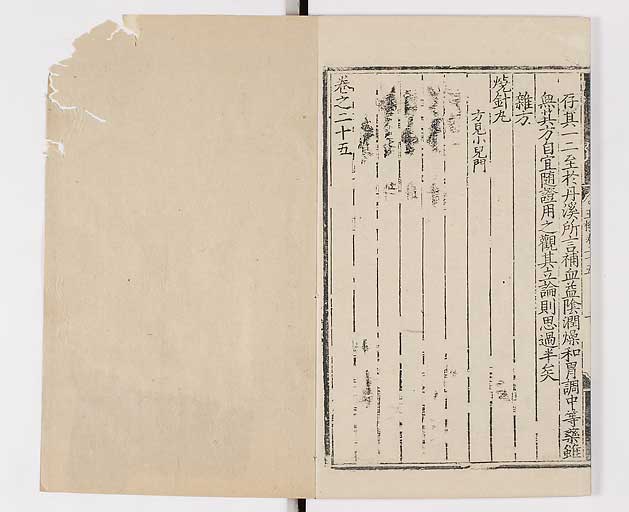 存其一二至於丹溪所言補血益陰潤燥和胃調中等藥雖
無其方自宜随證用之觀其立論則思過半矣
雜方
燒針丸
方見小兒門
卷之二十五